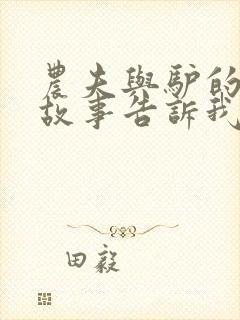 農夫與驢的
故事告訴我
田毅